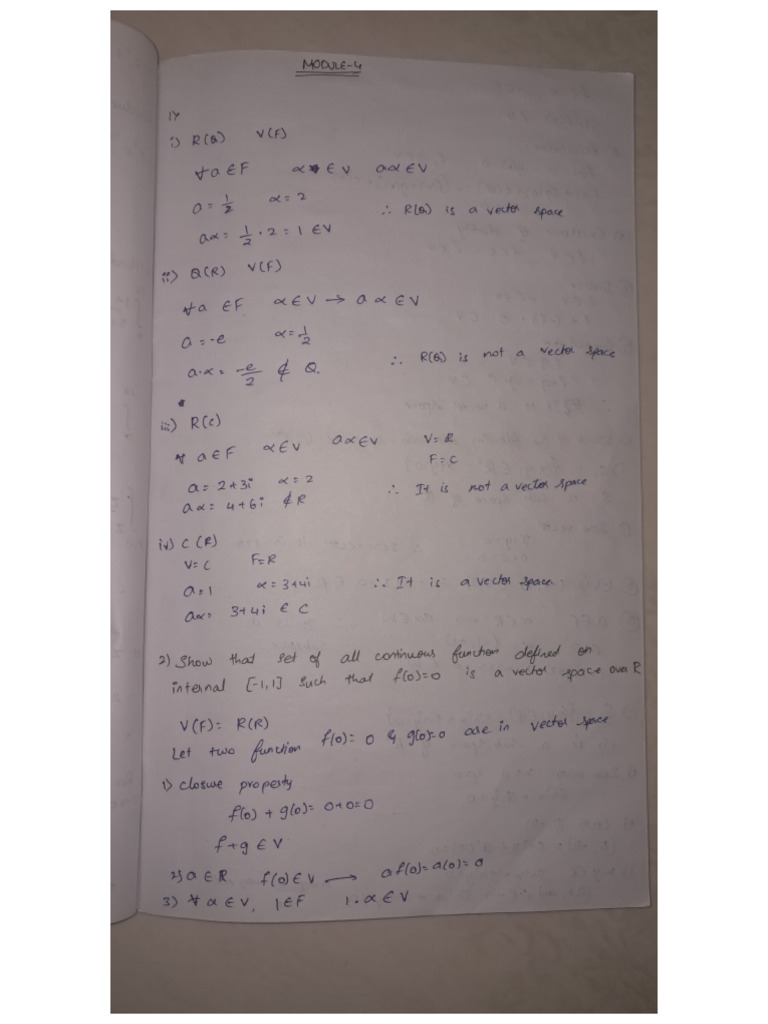 MODULE-4
1)
i) R(Q) V(F)
∀a∈F α∈V aα∈V
a = 1/2 α = 2
∴ R(Q) is a vector space
aα = 1/2 · 2 = 1 ∈V
ii) Q(R) V(F)
∀a ∈F α∈V → a α ∈V
a = -e α = 1/2
∴ R(Q) is not a vector space
a·α = -e/2 ∉ Q.
iii) R(C)
∀ a∈F α∈V aα∈V V=R
F=C
a = 2+3i α = 2
∴ It is not a vector space
aα = 4+6i ∉R
iv) C (R)
V=C F=R
a=1 α = 3+4i ∴ It is a vector space
aα= 3+4i ∈ C
2) Show that set of all continuous function defined on
internal [-1,1] such that f(0)=0 is a vector space over R
V(F) = R(R)
Let two function f(0)= 0 & g(0)=0 are in vector space
1) closure property
f(0) + g(0) = 0+0=0
f+g ∈V
2) a ∈R f(0)∈V → af(0)=a(0)=0
3) ∀ α∈V, 1∈F 1·α∈V